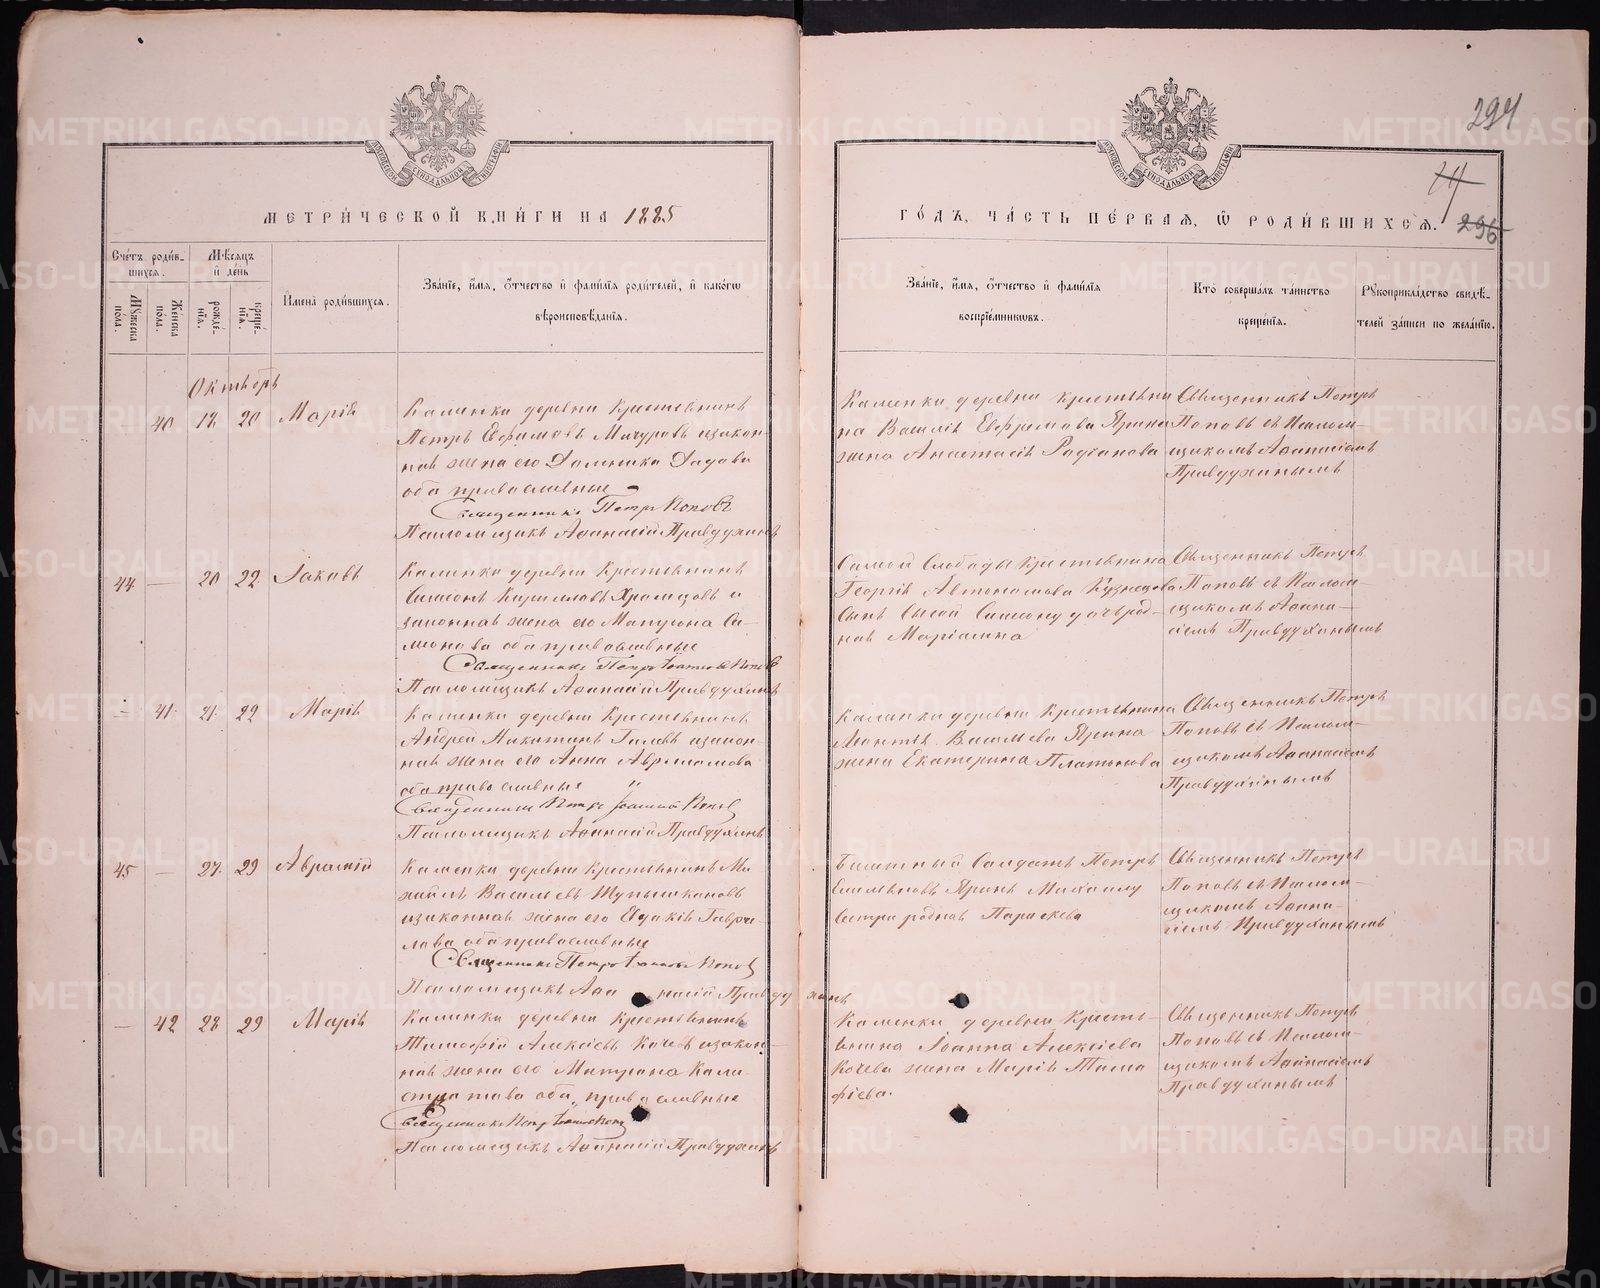 294
14
296
МЕТРИ́ЧЕСКОЙ КНИ́ГИ НА 1885
ГО́ДЪ, ЧА́СТЬ ПЕ́РВАЯ, Ѡ҆ РОДИ́ВШИХСЯ.
Сче́тъ роди́вшихся.
Мѣ́сяцъ и҆ де́нь
Му́жеска пола.
Же́нска пола.
рожде́нїя.
креще́нїя.
И҆мена̀ роди́вшихся.
Зва́нїе, и҆́мя, ѻ҆́тчество и҆ фами́лїя роди́телей, и҆ како́гѡ
вѣроисповѣ́данїя.
Зва́нїе, и҆́мя, ѻ҆́тчество и҆ фами́лїя
воспрїе́мникѡвъ.
Кто̀ соверша́лъ та́инство
креще́нїя.
Рꙋкоприкла́дство свидѣ́телей за́писи по жела́нїю.
Октябрь
40 18 20 Марія
Каменки деревни Крестьянинъ
Петръ Ефимовъ Мичуровъ изакон-
ная жена его Домника
оба православные
Священникъ Петръ Поповъ
Псаломщикъ Афанасій Правдухинъ
Каменки деревни крестьяни
на Василія Ефремова Ярина
жена Анастасія Родіонова
Священникъ Петръ
Поповъ съ Псалом-
щикомъ Афанасіемъ
Правдухинымъ
44 — 20 22 Іаковъ
Каменки деревни Крестьянинъ
Симеонъ Кириллавъ Храмцовъ и
законная жена его Матрона Си-
монова оба православные
Священникъ Петръ Іоанновъ Поповъ
Псаломщикъ Афанасій Правдухинъ
Самой Слободы Крестьянина
Георгія Автономова Кузнецова
Сынъ Сысой Симеону дочь род-
ная Маріамна
Священникъ Петръ
Поповъ съ Псалом-
щикомъ Афана-
сіемъ Правдухинымъ
— 41 21 22 Марія
Каменки деревни Крестьянинъ
Андрей Никитинъ Гилевъ изакон-
ная жена его Анна
оба православные
Священникъ Петръ Іоанновъ Поповъ
Псаломщикъ Афанасій Правдухинъ
Каменки деревни Крестьянина
Леонтія Васильева Ярина
жена Екатерина Платонова
Священникъ Петръ
Поповъ съ Псалом-
щикомъ Афанасіемъ
Правдухинымъ
45 — 27 29 Аврамій
Каменки деревни Крестьянинъ Ми
хаилъ Васильевъ Шупышкановъ
изаконная жена его Евдокія Гаври-
лова оба православные
Священникъ Петръ Іоанновъ Поповъ
Псаломщикъ Афанасій Правдухинъ
Билетный Солдатъ Петръ
Яринъ Михаилу
сестра родная Параскева
Священникъ Петръ
Поповъ съ Псалом-
щикомъ Афана-
сіемъ Правдухинымъ
— 42 28 29 Марія
Каменки деревни Крестьянинъ
Тимофій Алексіевъ Кочевъ изакон-
ная жена его Матрона Кали-
стратова оба православные
Священникъ Петръ Іоанновъ Поповъ
Псаломщикъ Афанасій Правдухинъ
Каменки деревни Кресть-
янина Іоанна Алексіева
Кочева жена Марія Тимо
фіева.
Священникъ Петръ
Поповъ съ Псалом-
щикомъ Афанасіемъ
Правдухинымъ
METRIKI.GASO-URAL.RU